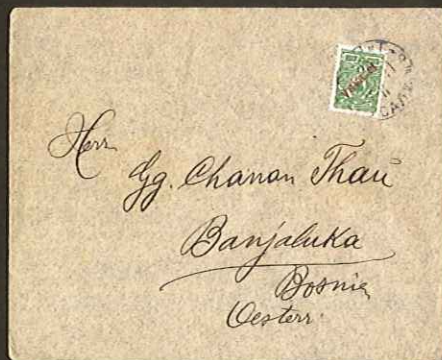 Herr
Gg. Chanan Thau
Banjaluka
Bosnien
Oesterr.